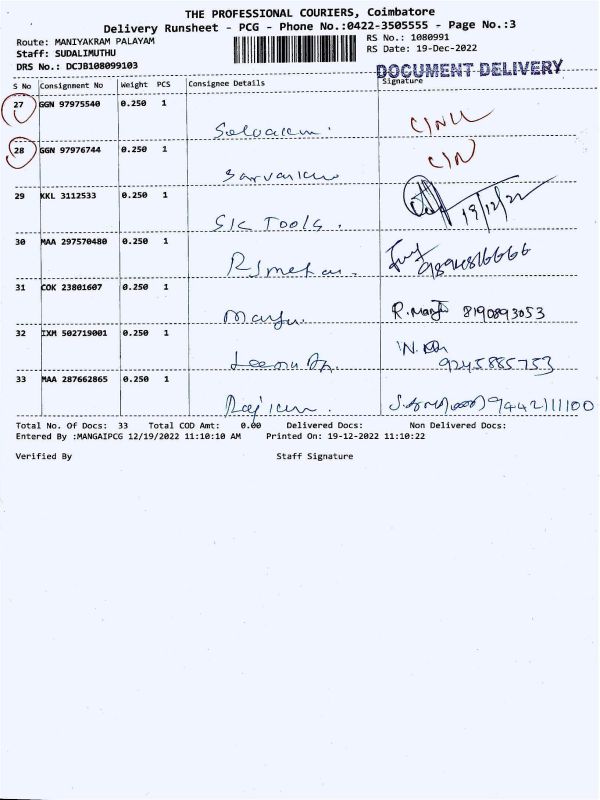 THE PROFESSIONAL COURIERS, Coimbatore
Delivery Runsheet - PCG - Phone No.:0422-3505555 - Page No.:3
Route: MANIYAKRAM PALAYAM
RS No.: 1080991
Staff: SUDALIMUTHU
RS Date: 19-Dec-2022
DRS No.: DCJB108099103
DOCUMENT DELIVERY
S No Consignment No Weight PCS Consignee Details Signature
27 GGN 97975540 0.250 1
28 GGN 97976744 0.250 1
29 KKL 3112533 0.250 1
SIC TOOLS. 19/12/22
30 MAA 297570480 0.250 1
9894816666
31 COK 23801607 0.250 1
Manju. R. Manju 8190893053
32 IXM 502719001 0.250 1
9245885753
33 MAA 287662865 0.250 1
9442111100
Total No. Of Docs: 33 Total COD Amt: 0.00 Delivered Docs: Non Delivered Docs:
Entered By :MANGAIPCG 12/19/2022 11:10:10 AM Printed On: 19-12-2022 11:10:22
Verified By Staff Signature